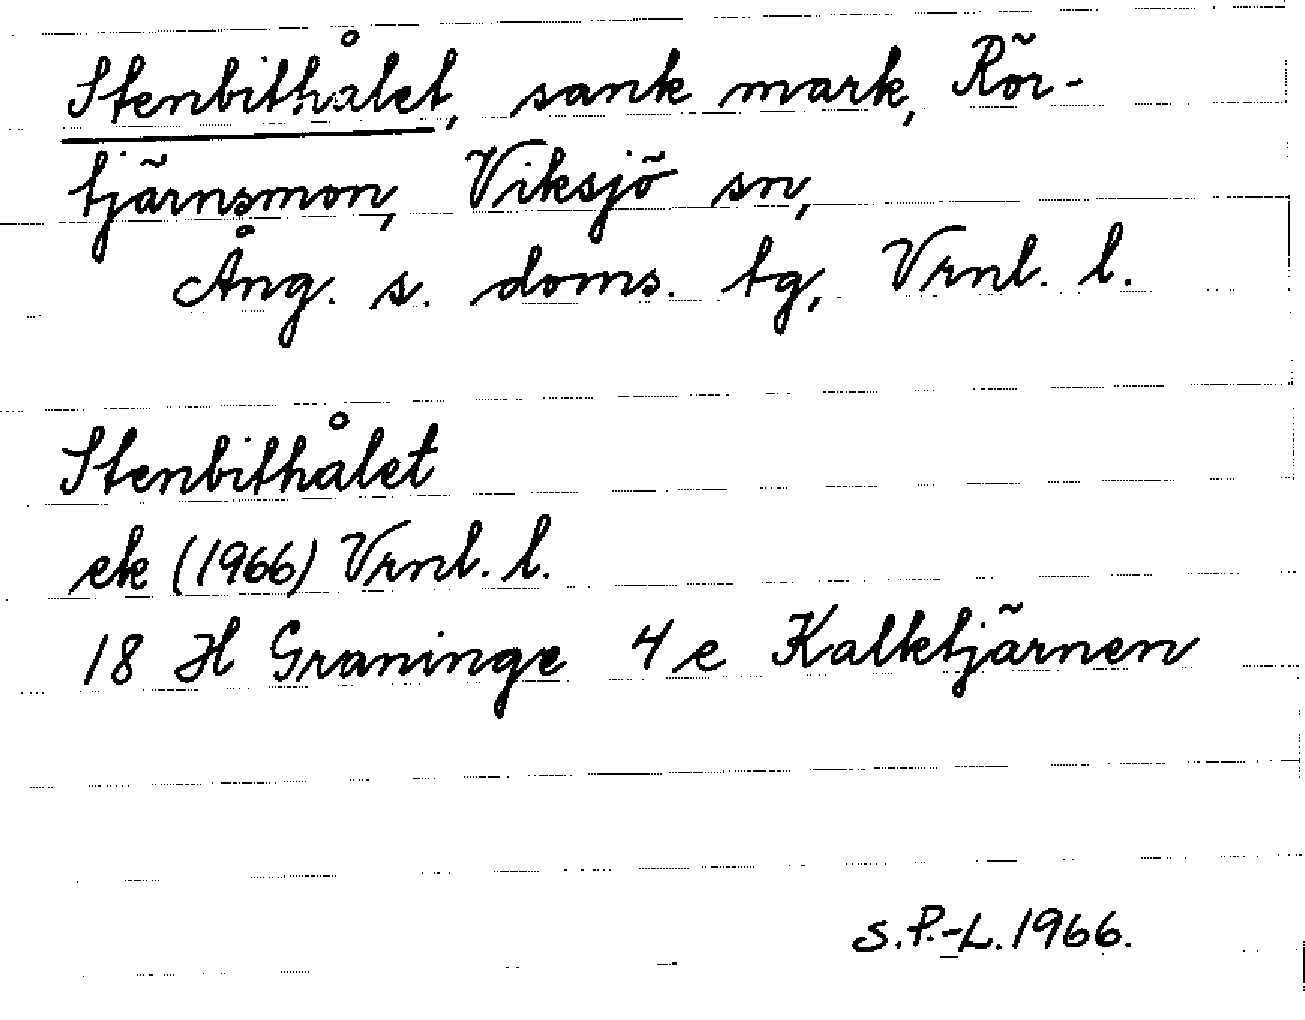 Stenbithålet, sank mark, Rör-
tjärnsmon, Viksjö sn,
Ång. s. doms. tg, Vrnl. l.
Stenbithålet
ek (1966) Vrnl. l.
18 H Graninge 4 e Kalktjärnen
S.P.-L. 1966.